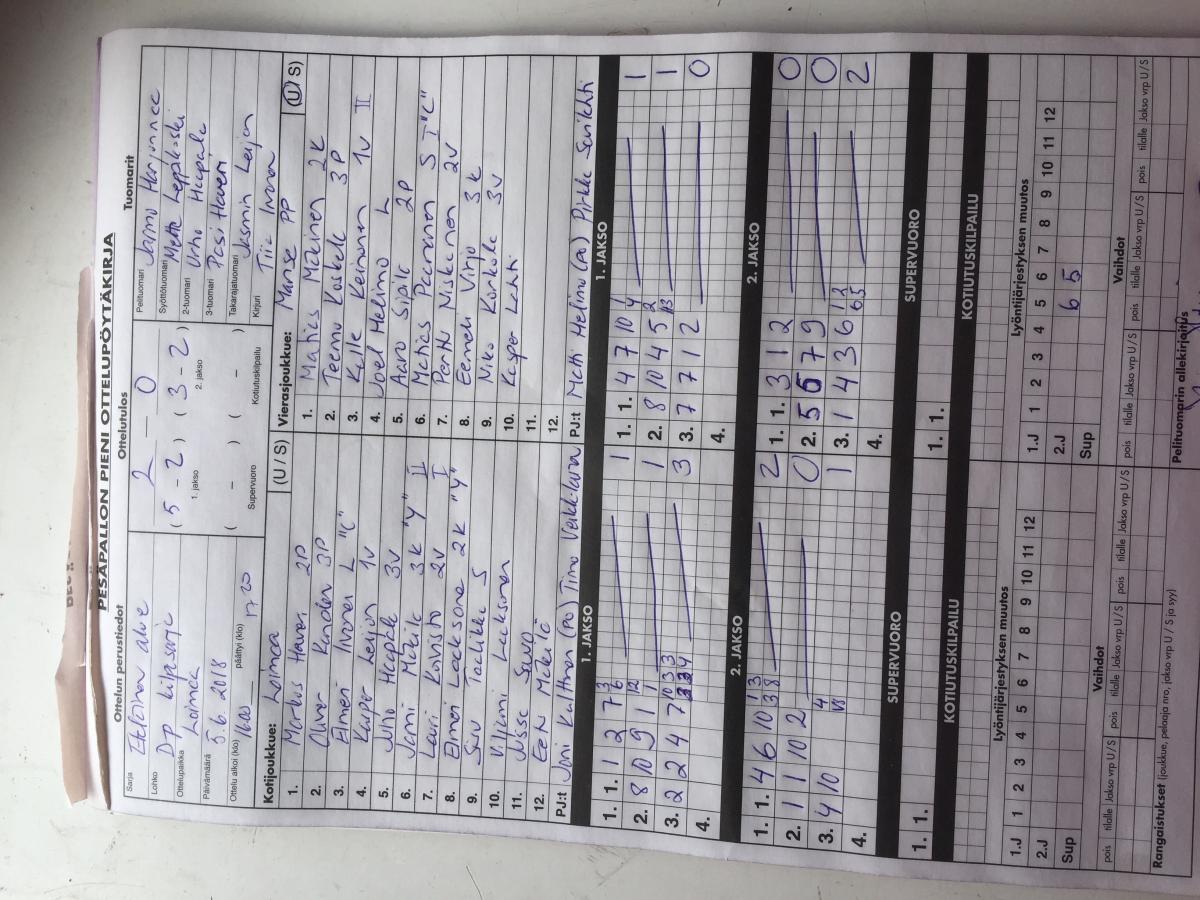 PESÄPALLON PIENI OTTELUPÖYTÄKIRJA
Ottelun perustiedot
Ottelutulos
Tuomarit
Sarja Eteläinen alue
Lohko Dp kilpasarja
Ottelupaikka Loimaa
Päivämäärä 5.6.2018
Ottelu alkoi (klo) 1600 päättyi (klo) 17.20
2 – 0
( 5 – 2 ) ( 3 – 2 )
1. jakso 2. jakso
( – ) ( – )
Supervuoro Kotiutuskilpailu
Pelituomari Jarmo Harjunnee
Syöttötuomari Mette Leppikoski
2-tuomari Urho Haapala
3-tuomari Pasi Haveri
Takarajatuomari Jasmin Leijon
Kirjuri Tiia Innanen
Kotijoukkue: Loimaa (U / S)
1. Markus Haveri 2P
2. Oliver Kanden 3P
3. Elmeri Ivonen L "C"
4. Kasper Leijon 1V
5. Juho Haapala 3V
6. Jemi Mäkilä 3K "Y" II
7. Lauri Koivisto 2V I
8. Elmeri Laaksonen 2K "Y"
9. Saku Taalikka S
10. Viljami Laaksonen
11. Jusse Suvo
12. Eetu Mäkilä
PJ:t Joni Kulhman (PO) Timo Veikk-lava
Vierasjoukkue: Manse PP (U / S)
1. Mathias Mäkinen 2K
2. Teemu Koskela 3P
3. Kalle Keinonen 1V II
4. Joel Helimo L
5. Aaro Sipilä 2P
6. Matias Paananen S I "C"
7. Perttu Niskanen 2V
8. Eemeli Virjo 3K
9. Niko Korkola 3V
10. Kasper Lehti
11.
12.
PJ:t Matti Helimo (PO) Pirkka Sarilahti
1. JAKSO
1. JAKSO
1. 1. 1 2 7 3 6 1
2. 8 10 9 1 1 12 1
3. 2 2 4 7 10 3 3 3
4.
1. 1. 4 7 10 1 4 1
2. 8 10 4 5 2 13 1
3. 7 7 1 2 0
4.
2. JAKSO
2. JAKSO
1. 1. 4 6 10 1 3 3 8 2
2. 1 1 10 2 0
3. 4 10 4 1
4.
1. 1. 3 1 2 0
2. 5 6 7 9 0
3. 1 4 3 6 12 65 2
4.
SUPERVUORO
SUPERVUORO
1. 1.
1. 1.
KOTIUTUSKILPAILU
KOTIUTUSKILPAILU
Lyöntijärjestyksen muutos
Lyöntijärjestyksen muutos
1.J 1 2 3 4 5 6 7 8 9 10 11 12
2.J
Sup
1.J 1 2 3 4 5 6 7 8 9 10 11 12
2.J 6 5
Sup
Vaihdot
Vaihdot
pois tilalle Jakso vrp U/S pois tilalle Jakso vrp U/S pois tilalle Jakso vrp U/S
pois tilalle Jakso vrp U/S pois tilalle Jakso vrp U/S pois tilalle Jakso vrp U/S
Rangaistukset (joukkue, pelaaja nro, jakso, vrp U / S ja syy)
Pelituomarin allekirjoitus